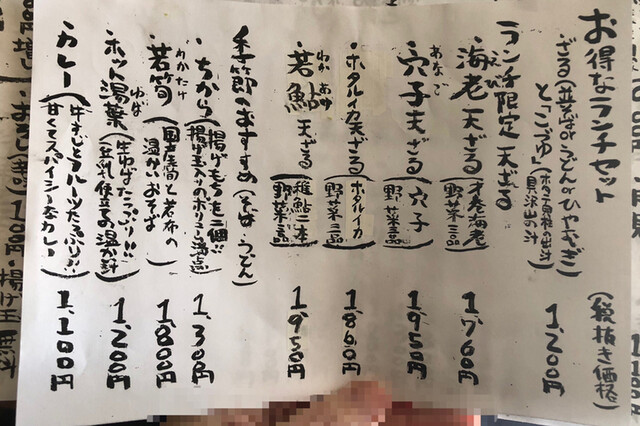 お得なランチセット (税抜き価格)
ざる(並そば or うどん or ひやむぎ)
と「こづゆ」 1,200円
ランチ限定 天ざる
海老天ざる (才巻海老 野菜三品) 1,760円
えび
穴子天ざる (穴子 野菜三品) 1,950円
あなご
ホタルイカ天ざる (ホタルイカ 野菜三品) 1,860円
若鮎天ざる (稚鮎二本 野菜三品) 1,950円
わかあゆ
季節のおすすめ (そば・うどん)
ちから (揚げもちを二個!! 揚げ玉入りのボリューム満点) 1,300円
若筍 (国産筍と若布の温かいおそば 1,800円
わかたけ
ホット湯葉 (生ゆばたっぷり!! 豆乳仕立の温か汁 1,200円
ゆば
カレー (牛すじとフルーツたっぷり!! 甘くてスパイシーなカレー) 1,100円
揚げ玉 無料